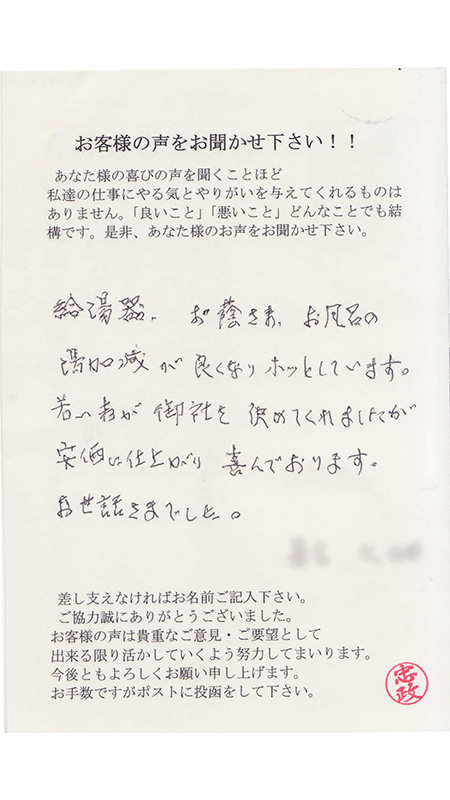 お客様の声をお聞かせ下さい！！
あなた様の喜びの声を聞くことほど
私達の仕事にやる気とやりがいを与えてくれるものは
ありません。「良いこと」「悪いこと」どんなことでも結
構です。是非、あなた様のお声をお聞かせ下さい。
給湯器、お蔭さま、お風呂の
湯加減が良くなりホッとしています。
若い者が御社を決めてくれましたが
安価に仕上がり喜んでおります。
お世話さまでした。
差し支えなければお名前ご記入下さい。
ご協力誠にありがとうございました。
お客様の声は貴重なご意見・ご要望として
出来る限り活かしていくよう努力してまいります。
今後ともよろしくお願い申し上げます。
お手数ですがポストに投函をして下さい。
忠政